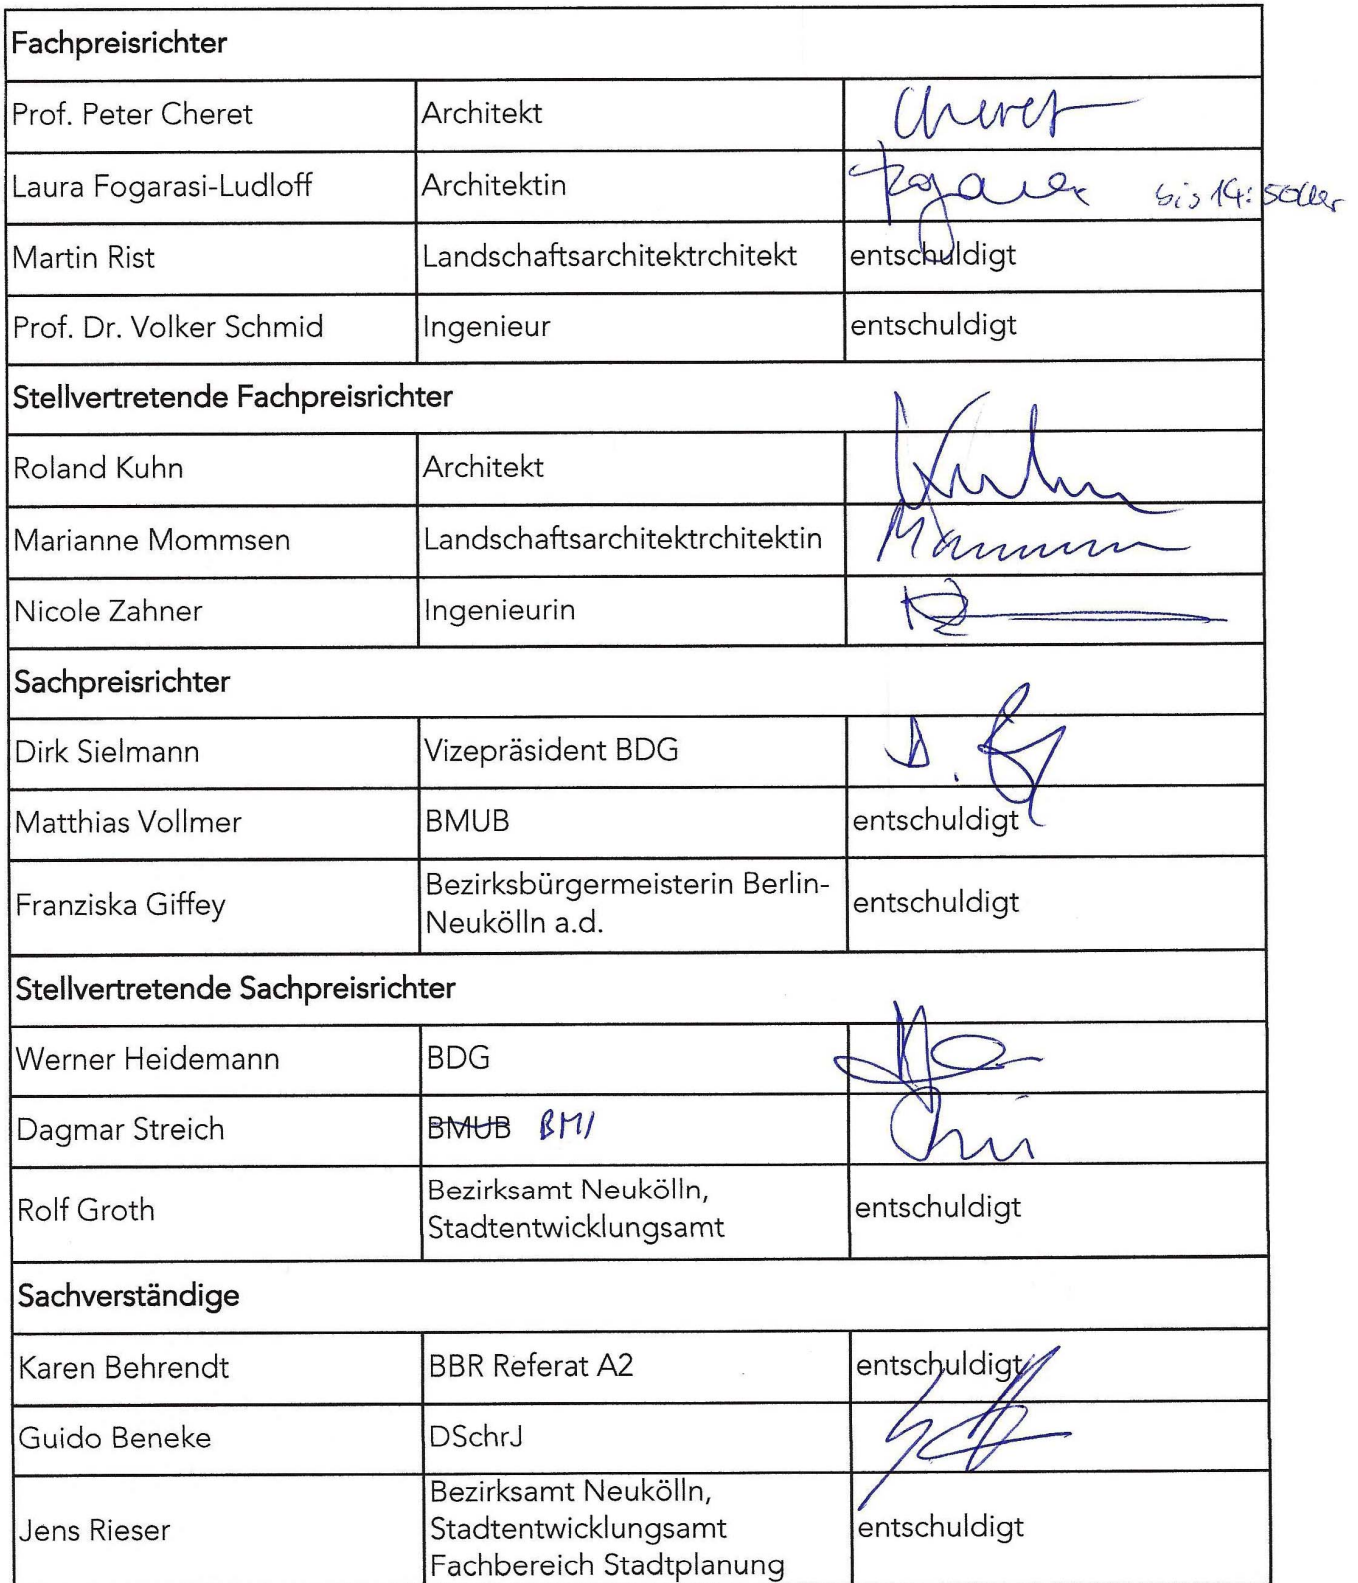 Fachpreisrichter
Prof. Peter Cheret Architekt Cheret
Laura Fogarasi-Ludloff Architektin bis 14:50 Uhr
Martin Rist Landschaftsarchitektrchitekt entschuldigt
Prof. Dr. Volker Schmid Ingenieur entschuldigt
Stellvertretende Fachpreisrichter
Roland Kuhn Architekt Kuhn
Marianne Mommsen Landschaftsarchitektrchitektin
Nicole Zahner Ingenieurin
Sachpreisrichter
Dirk Sielmann Vizepräsident BDG
Matthias Vollmer BMUB entschuldigt
Franziska Giffey Bezirksbürgermeisterin Berlin-
Neukölln a.d. entschuldigt
Stellvertretende Sachpreisrichter
Werner Heidemann BDG
Dagmar Streich BMUB BMI
Rolf Groth Bezirksamt Neukölln,
Stadtentwicklungsamt entschuldigt
Sachverständige
Karen Behrendt BBR Referat A2 entschuldigt
Guido Beneke DSchrJ
Jens Rieser Bezirksamt Neukölln,
Stadtentwicklungsamt
Fachbereich Stadtplanung entschuldigt